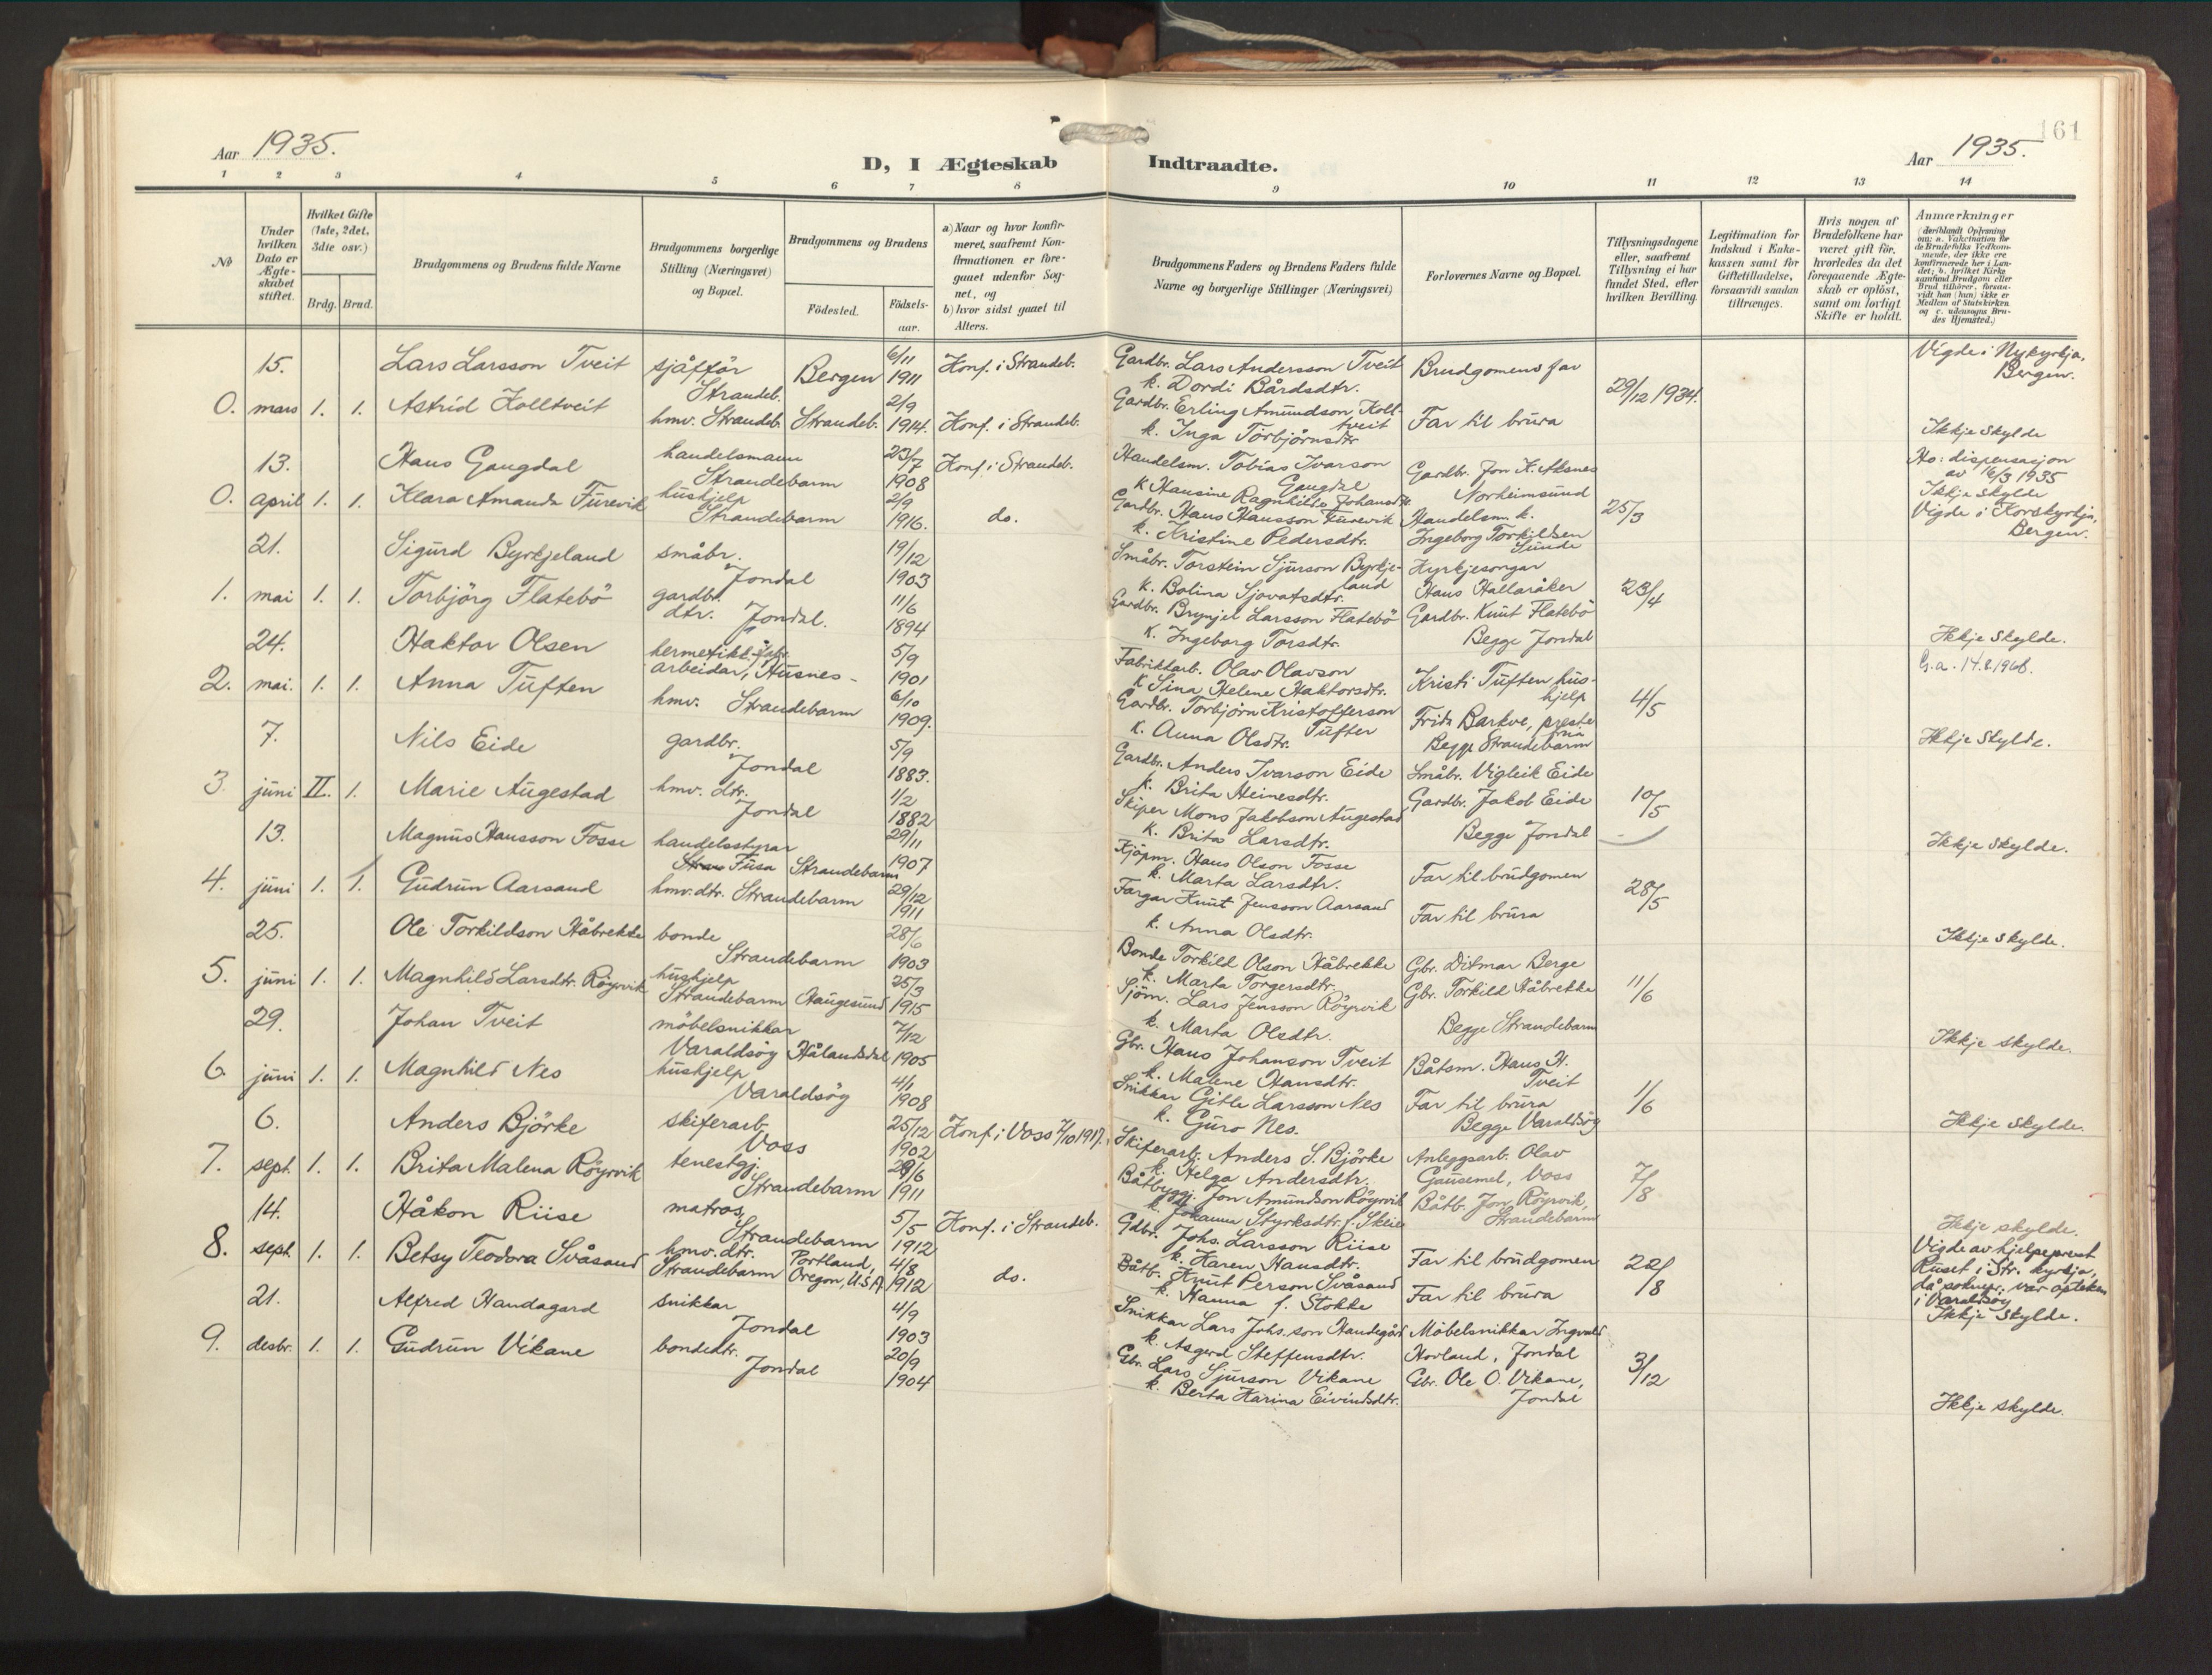 161
Aar 1935.
D, I Ægteskab Indtraadte.
Aar 1935.
1 2 3 4 5 6 7 8 9 10 11 12 13 14
No
Under hvilken Dato er Ægteskabet stiftet.
Hvilket Gifte (1ste, 2det, 3die osv.)
Brdg. Brud.
Brudgommens og Brudens fulde Navne
Brudgommens borgerlige Stilling (Næringsvei) og Bopæl.
Brudgommens og Brudens
Fødested.
Fødsels-aar.
a) Naar og hvor konfir-
meret, saafremt Kon-
firmationen er fore-
gaaet udenfor Sog-
net, og
b) hvor sidst gaaet til
Alters.
Brudgommens Faders og Brudens Faders fulde
Navne og borgerlige Stillinger (Næringsvei)
Forlovernes Navne og Bopæl.
Tillysningsdagene
eller, saafremt
Tillysning ei har
fundet Sted, efter
hvilken Bevilling.
Legitimation for
Indskud i Enke-
kassen samt for
Giftetilladelse,
forsaavidt saadan
tiltrænges.
Hvis nogen af
Brudefolkene har
været gift før,
hvorledes da det
foregaaende Ægte-
skab er opløst,
samt om lovligt
Skifte er holdt.
Anmærkninger
(deriblandt Oplysning
om: a. Vakcination for
de Brudefolks Vedkom-
mende, der ikke ere
konfirmerede her i Lan-
det; b. hvilket Kirke-
samfund Brudgom eller
Brud tilhører, forsaa-
vidt han (hun) ikke er
Medlem af Statskirken
og c. udensogns Bru-
des Hjemsted.)
0. 15. mars 1. 1.
Lars Larsson Tveit
Astrid Kolltveit
sjåffør
Strandeb.
hmv. Strandeb.
Bergen
Strandeb.
6/11 1911
2/9 1914.
Konf. i Strandeb.
Konf. i Strandeb.
Gardbr. Lars Andersson Tveit
k. Dordi Bårdsdtr.
Gardbr. Erling Amundson Koll-
tveit
k. Inga Torbjørnsdtr
Brudgomens far
Far til brura
29/12 1934.
Vigde i Nykyrkja,
Bergen.
Ikkje skylde
0. 13. april 1. 1.
Hans Gangdal
Klara Amanda Furevik
handelsmann
Strandebarm
hushjelp
Strandebarm
23/7 1908
2/9 1916.
Konf. i Strandeb.
do.
Handelsm. Tobias Ivarson
Gangdal
k Hansine Ragnhilde Johansdtr
Gardbr. Hans Hansson Furevik
k. Kristine Pedersdtr.
Gardbr. Jon K. Aksnes
Norheimsund
Handelsm. k.
Ingeborg Torkildsen
Sunde
25/3
Ho: dispensasjon
av 16/3 1935
Ikkje skylde
Vigde i Korskyrkja,
Bergen.
1. 21. mai 1. 1.
Sigurd Byrkjeland
Torbjörg Flatebö
småbr.
Jondal
gardbr.
dtr. Jondal.
19/12 1903
11/6 1894
Småbr. Torstein Sjurson Byrkje-
land
k. Bolina Sjovatsdtr.
Gardbr. Brynjel Larsson Flatebö
k. Ingeborg Torsdtr.
Kyrkjesongar
Hans Hallaråker
Gardbr. Knut Flatebö
Begge Jondal
23/4
Ikkje skylde.
2. 24. mai. 1. 1.
Haktor Olsen
Anna Tuften
hermetikk-fabr.
arbeidar, Husnes -
hmv. Strandebarm
5/9 1901
6/10 1909.
Fabrikkarb. Olav Olavson
k Sina Helene Haktorsdtr.
Gardbr. Torbjörn Kristofferson
Tuften
k. Anna Olsdtr.
Kristi Tuften hus-
hjelp
Frida Barkve, preste
frua
Begge Strandebarm
4/5
G.a. 14.8.1968.
Ikkje skylde.
3. 7. juni II. 1.
Nils Eide
Marie Augestad
gardbr.
Jondal
hmv. dtr.
Jondal
5/9 1883.
1/2 1882
Gardbr. Anders Ivarson Eide
k. Brita Heinesdtr.
Skiper Mons Jakobson Augestad
k. Brita Larsdtr.
Småbr. Vigleik Eide
Gardbr. Jakob Eide
Begge Jondal
10/5
Ikkje skylde.
4. 13. juni 1. 1.
Magnus Hansson Fosse
Gudrun Aarsand
handelsstyrar
Fusa
hmv. dtr. Strandebarm
Strandebarm
29/11 1907
29/12 1911
Kjøpm. Hans Olson Fosse
k. Marta Larsdtr.
Fargar Knut Jensson Aarsand
k. Anna Olsdtr.
Far til brudgomen
Far til brura
28/5
Ikkje skylde.
5. 25. juni 1. 1.
Ole Torkildson Håbrekke
Magnhild Larsdtr. Röyrvik
bonde
Strandebarm
hushjelp
Strandebarm
Haugesund
28/6 1903
25/3 1915
Bonde Torkild Olson Håbrekke
k. Marta Torgersdtr.
Sjöm. Lars Jensson Röyrvik
k. Marta Olsdtr.
Gbr. Ditmar Berge
Gbr. Torkild Håbrekke
Begge Strandebarm
11/6
Ikkje skylde.
6 29. juni 1. 1.
Johan Tveit
Magnhild Nes
möbelsnikkar
Varaldsöy
hushjelp
Varaldsöy
Hålandsdal
7/12 1905
4/1 1908
Gbr. Hans Johanson Tveit
k. Malene Hansdtr.
Snikkar Gitle Larsson Nes
k. Guro Nes.
Båtsm. Hans H.
Tveit
Far til brura
Begge Varaldsöy
1/6
Ikkje skylde.
7. 6. sept. 1. 1.
Anders Björke
Brita Malena Röyrvik
skiferarb.
Voss
tenestgj.
Strandebarm
25/12 1902
28/6 1911
Konf. i Voss 7/10 1917.
Skiferarb. Anders S. Björke
k. Helga Andersdtr.
Båtbyggj. Jon Amundson Röyrvik
k. Johanna Styrksdtr. f. Skeie
Anleggsarb. Olav
Gausemel, Voss
Båtb. Jon Röyrvik,
Strandebarm
7/8
Ikkje skylde.
8. 14. sept. 1. 1.
Håkon Riise
Betsy Teodora Svåsand
matros,
Strandebarm
hmv. dtr.
Strandebarm
Portland,
Oregon, U.S.A.
5/5 1912
4/8 1912
Konf. i Strandeb.
do.
Gdbr. Johs. Larsson Riise
k. Karen Hansdtr.
Båtb. Knut Person Svåsand
k. Hanna f. Stokke
Far til brudgomen
Far til brura
22/8
Vigde av hjelpeprest
Ruset i Str. kyrkja,
då soknepr. var opteken
i Varaldsöy
Ikkje skylde.
9. 21. desbr. 1. 1.
Alfred Handagard
Gudrun Vikane
snikkar
Jondal
bondedtr.
Jondal
4/9 1903
20/9 1904
Snikkar Lars Johs.son Handegård
k. Asgerd Steffensdtr.
Gbr. Lars Sjurson Vikane
k. Berta Karina Eivindsdtr.
Möbelsnikkar Ingvald
Hovland, Jondal
Gbr. Ole O. Vikane,
Jondal
3/12
Ikkje skylde.